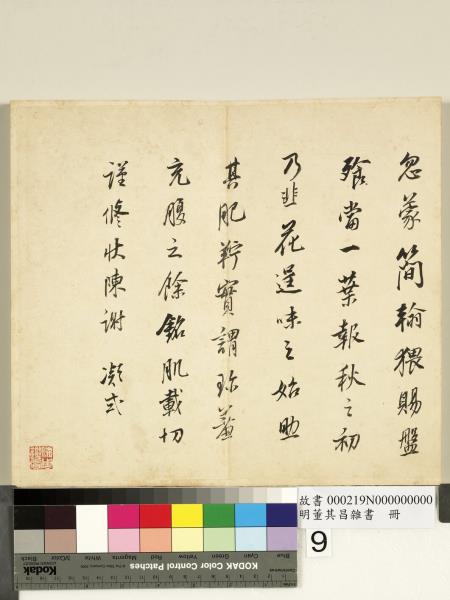 忽蒙簡翰猥賜盤
飱當一葉報秋之初
乃韭花逞味之始助
其肥羜實謂珍羞
充腹之餘銘肌載切
謹脩狀陳謝 凝式
故書 000219N000000000
明董其昌雜書 冊
9
KODAK Color Control Patches
Blue Cyan Green Yellow Red Magenta White 3/Color Black
Kodak